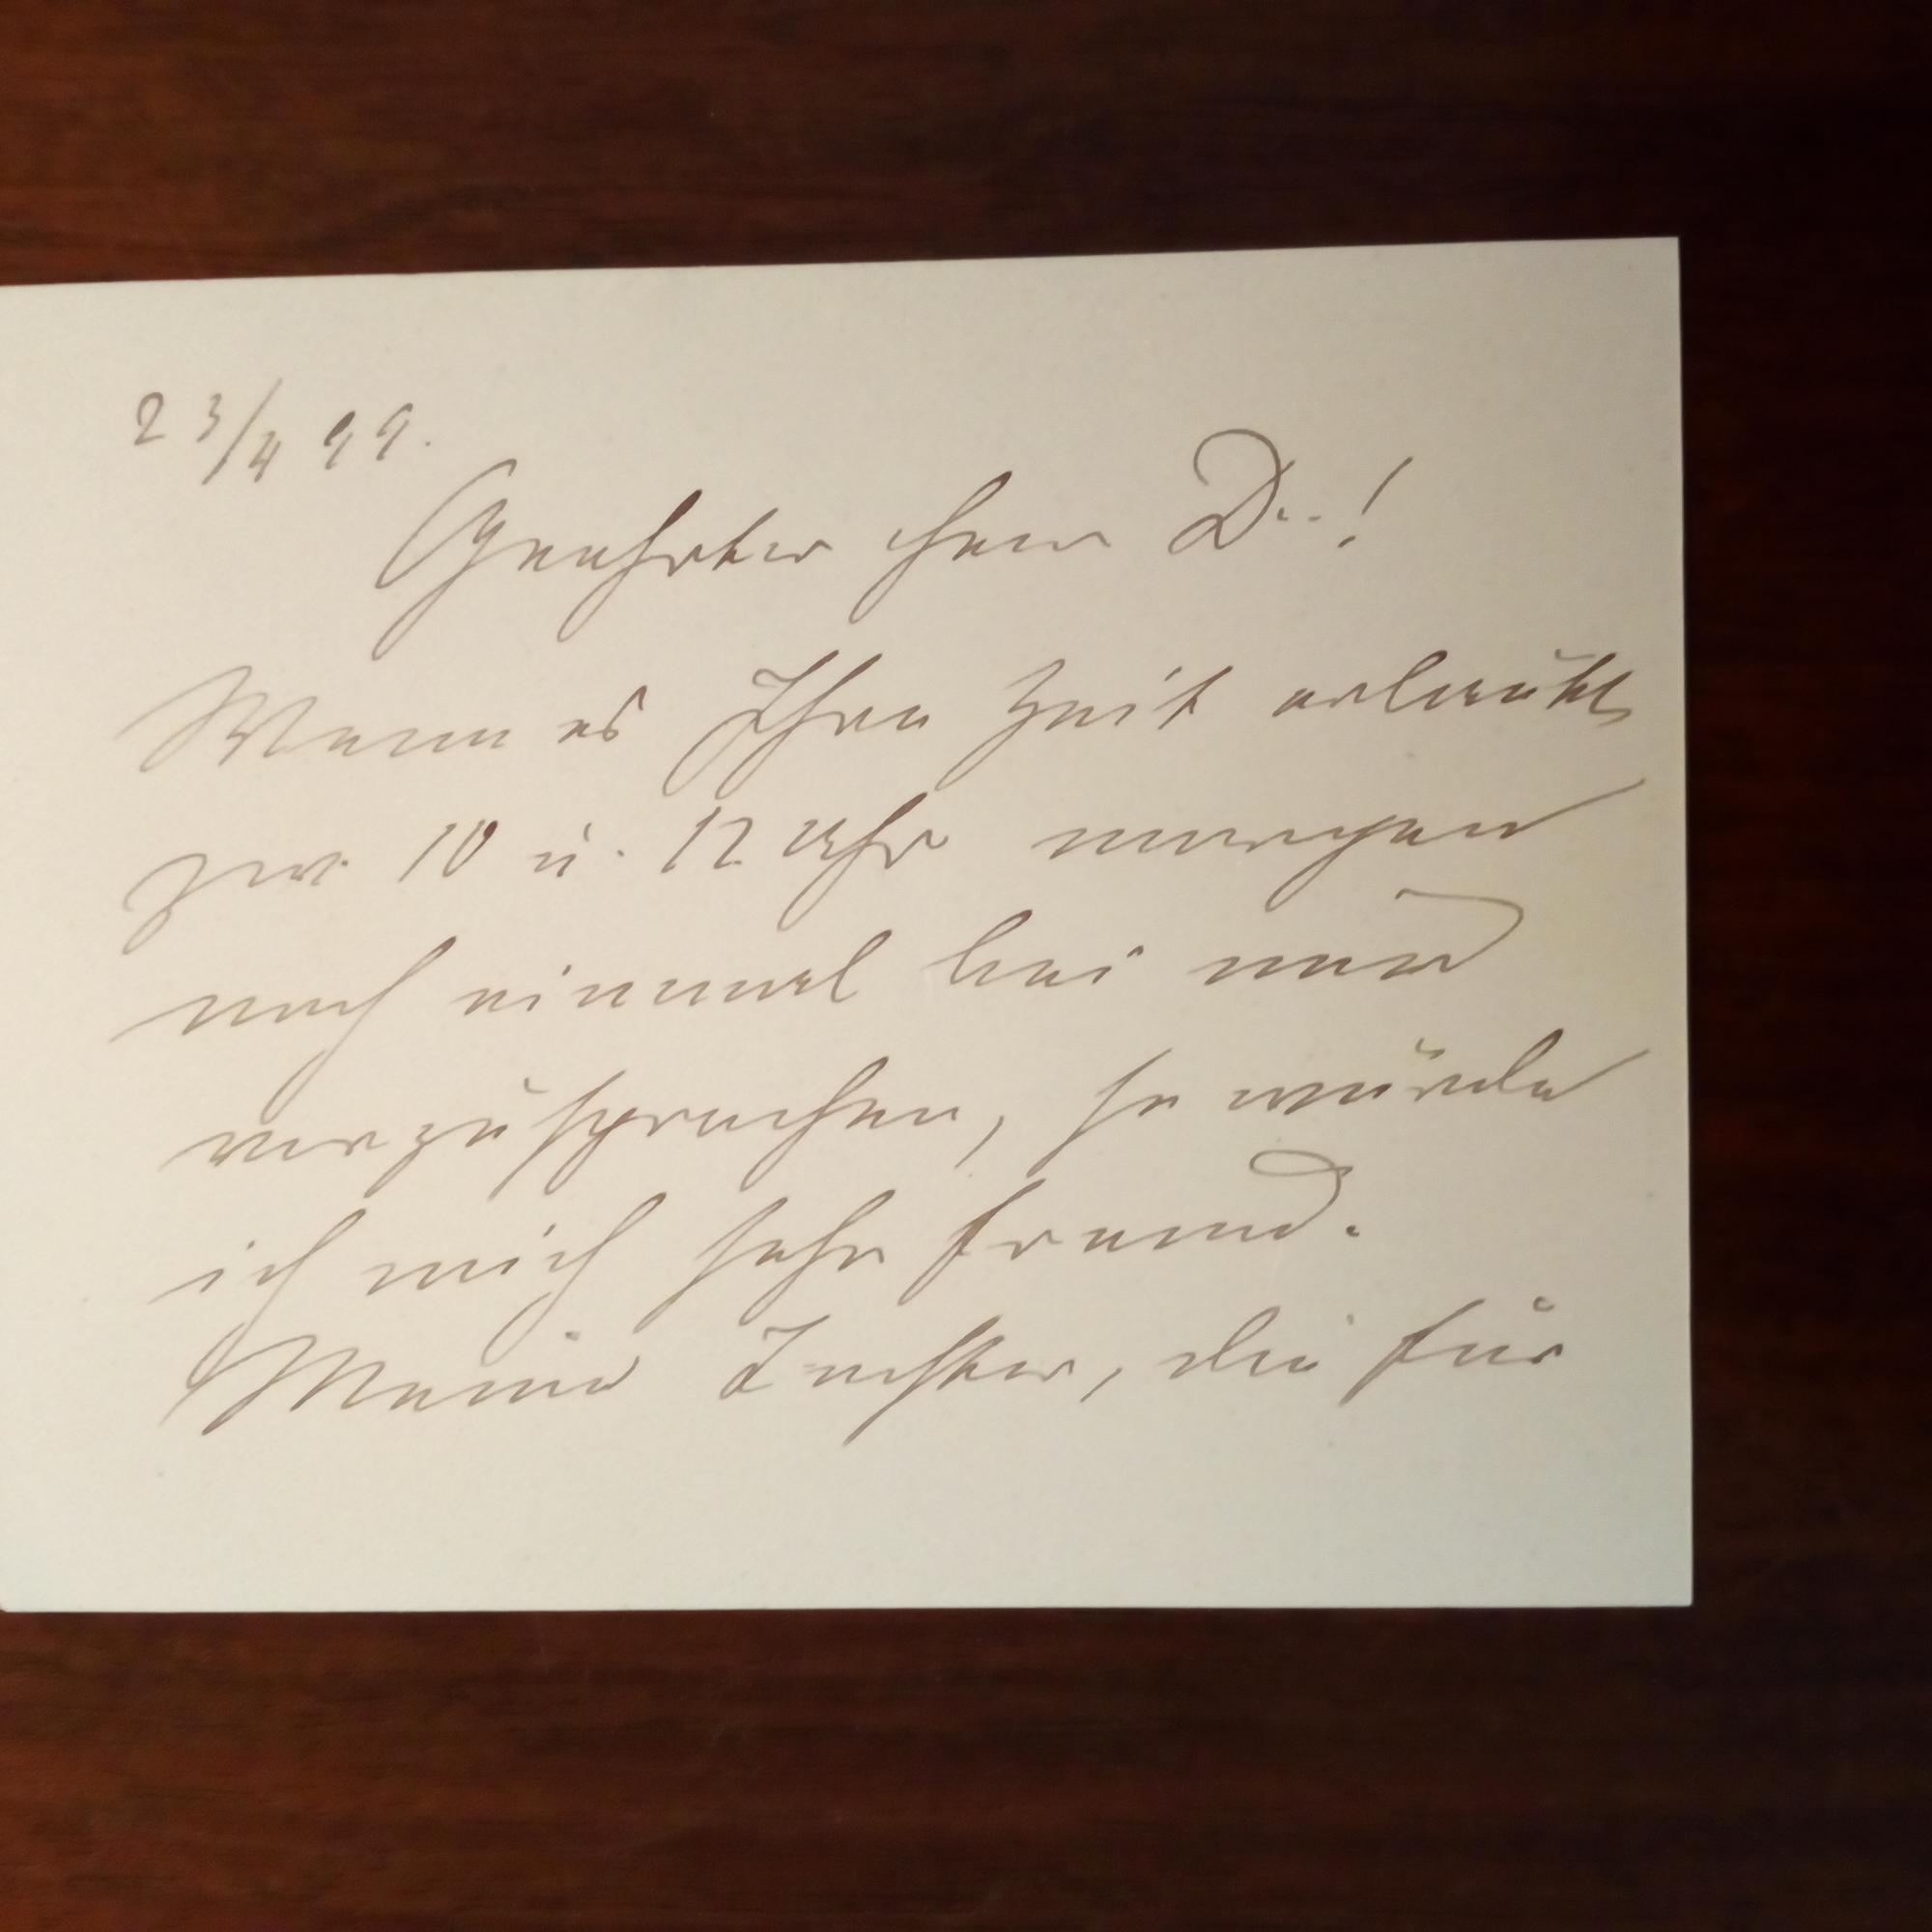 23/4 99.
Geehrter Herr Dr.!
Wenn es Ihre Zeit erlaubt,
zw. 10 u. 12 Uhr morgen
noch einmal bei uns
vorzusprechen, so würde
ich mich sehr freuen.
Meine Tochter, die für